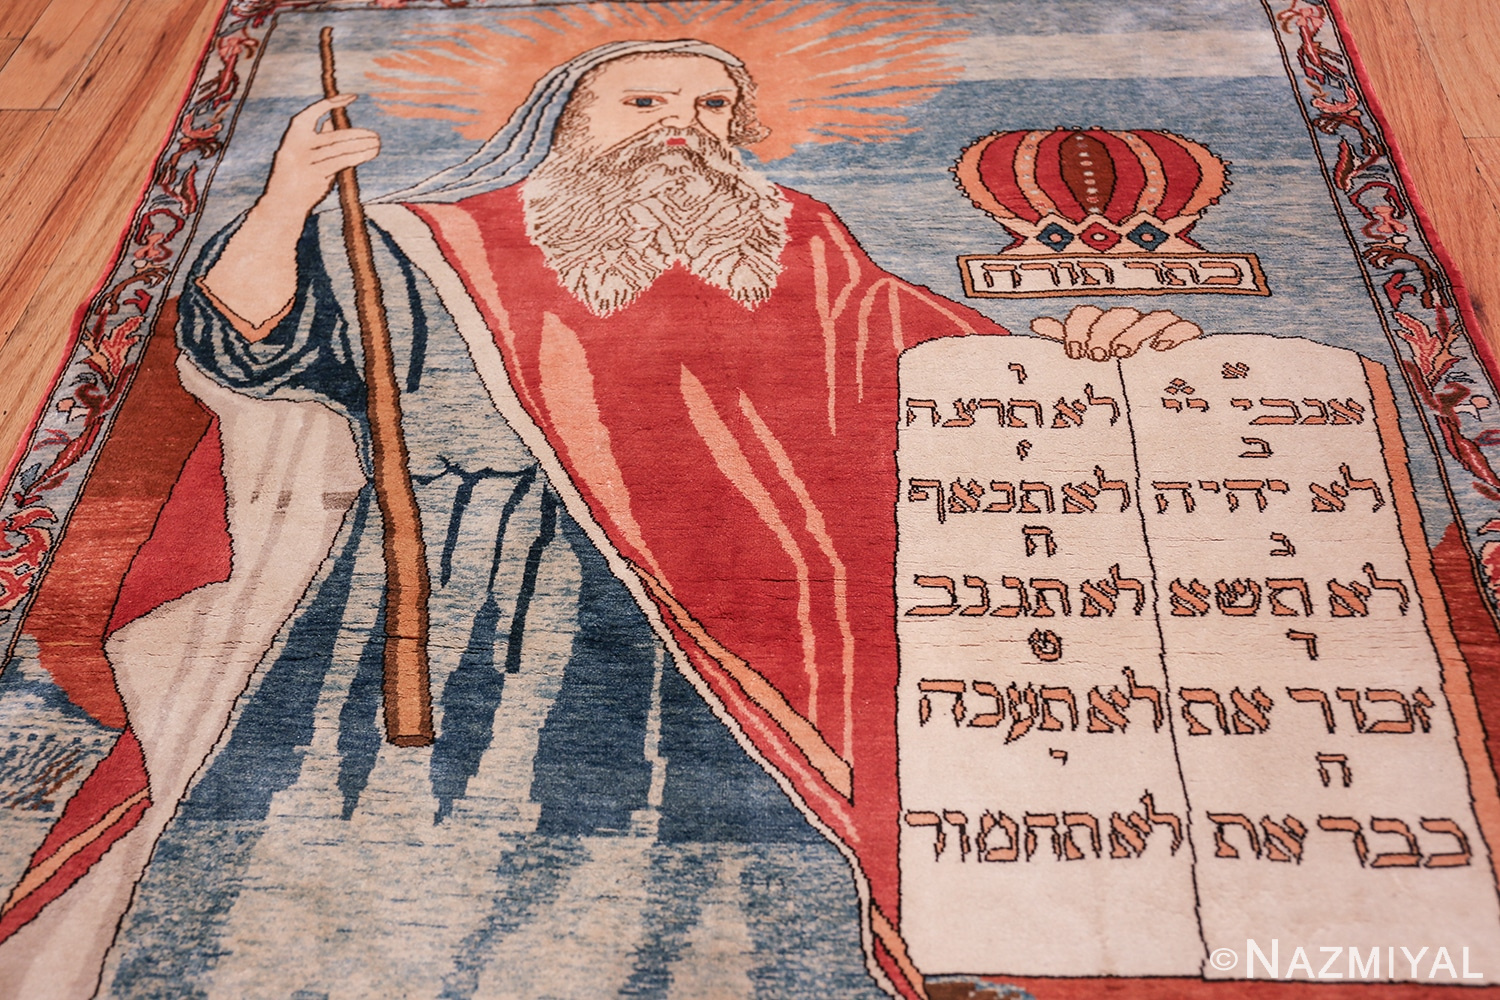 כתר תורה
א
אנכי ייי
ב
לא יהיה
ג
לא תשא
ד
זכור את
ה
כבד את
ו
לא תרצה
ז
לא תנאף
ח
לא תגנב
ט
לא תענה
י
לא תחמוד
© NAZMIYAL